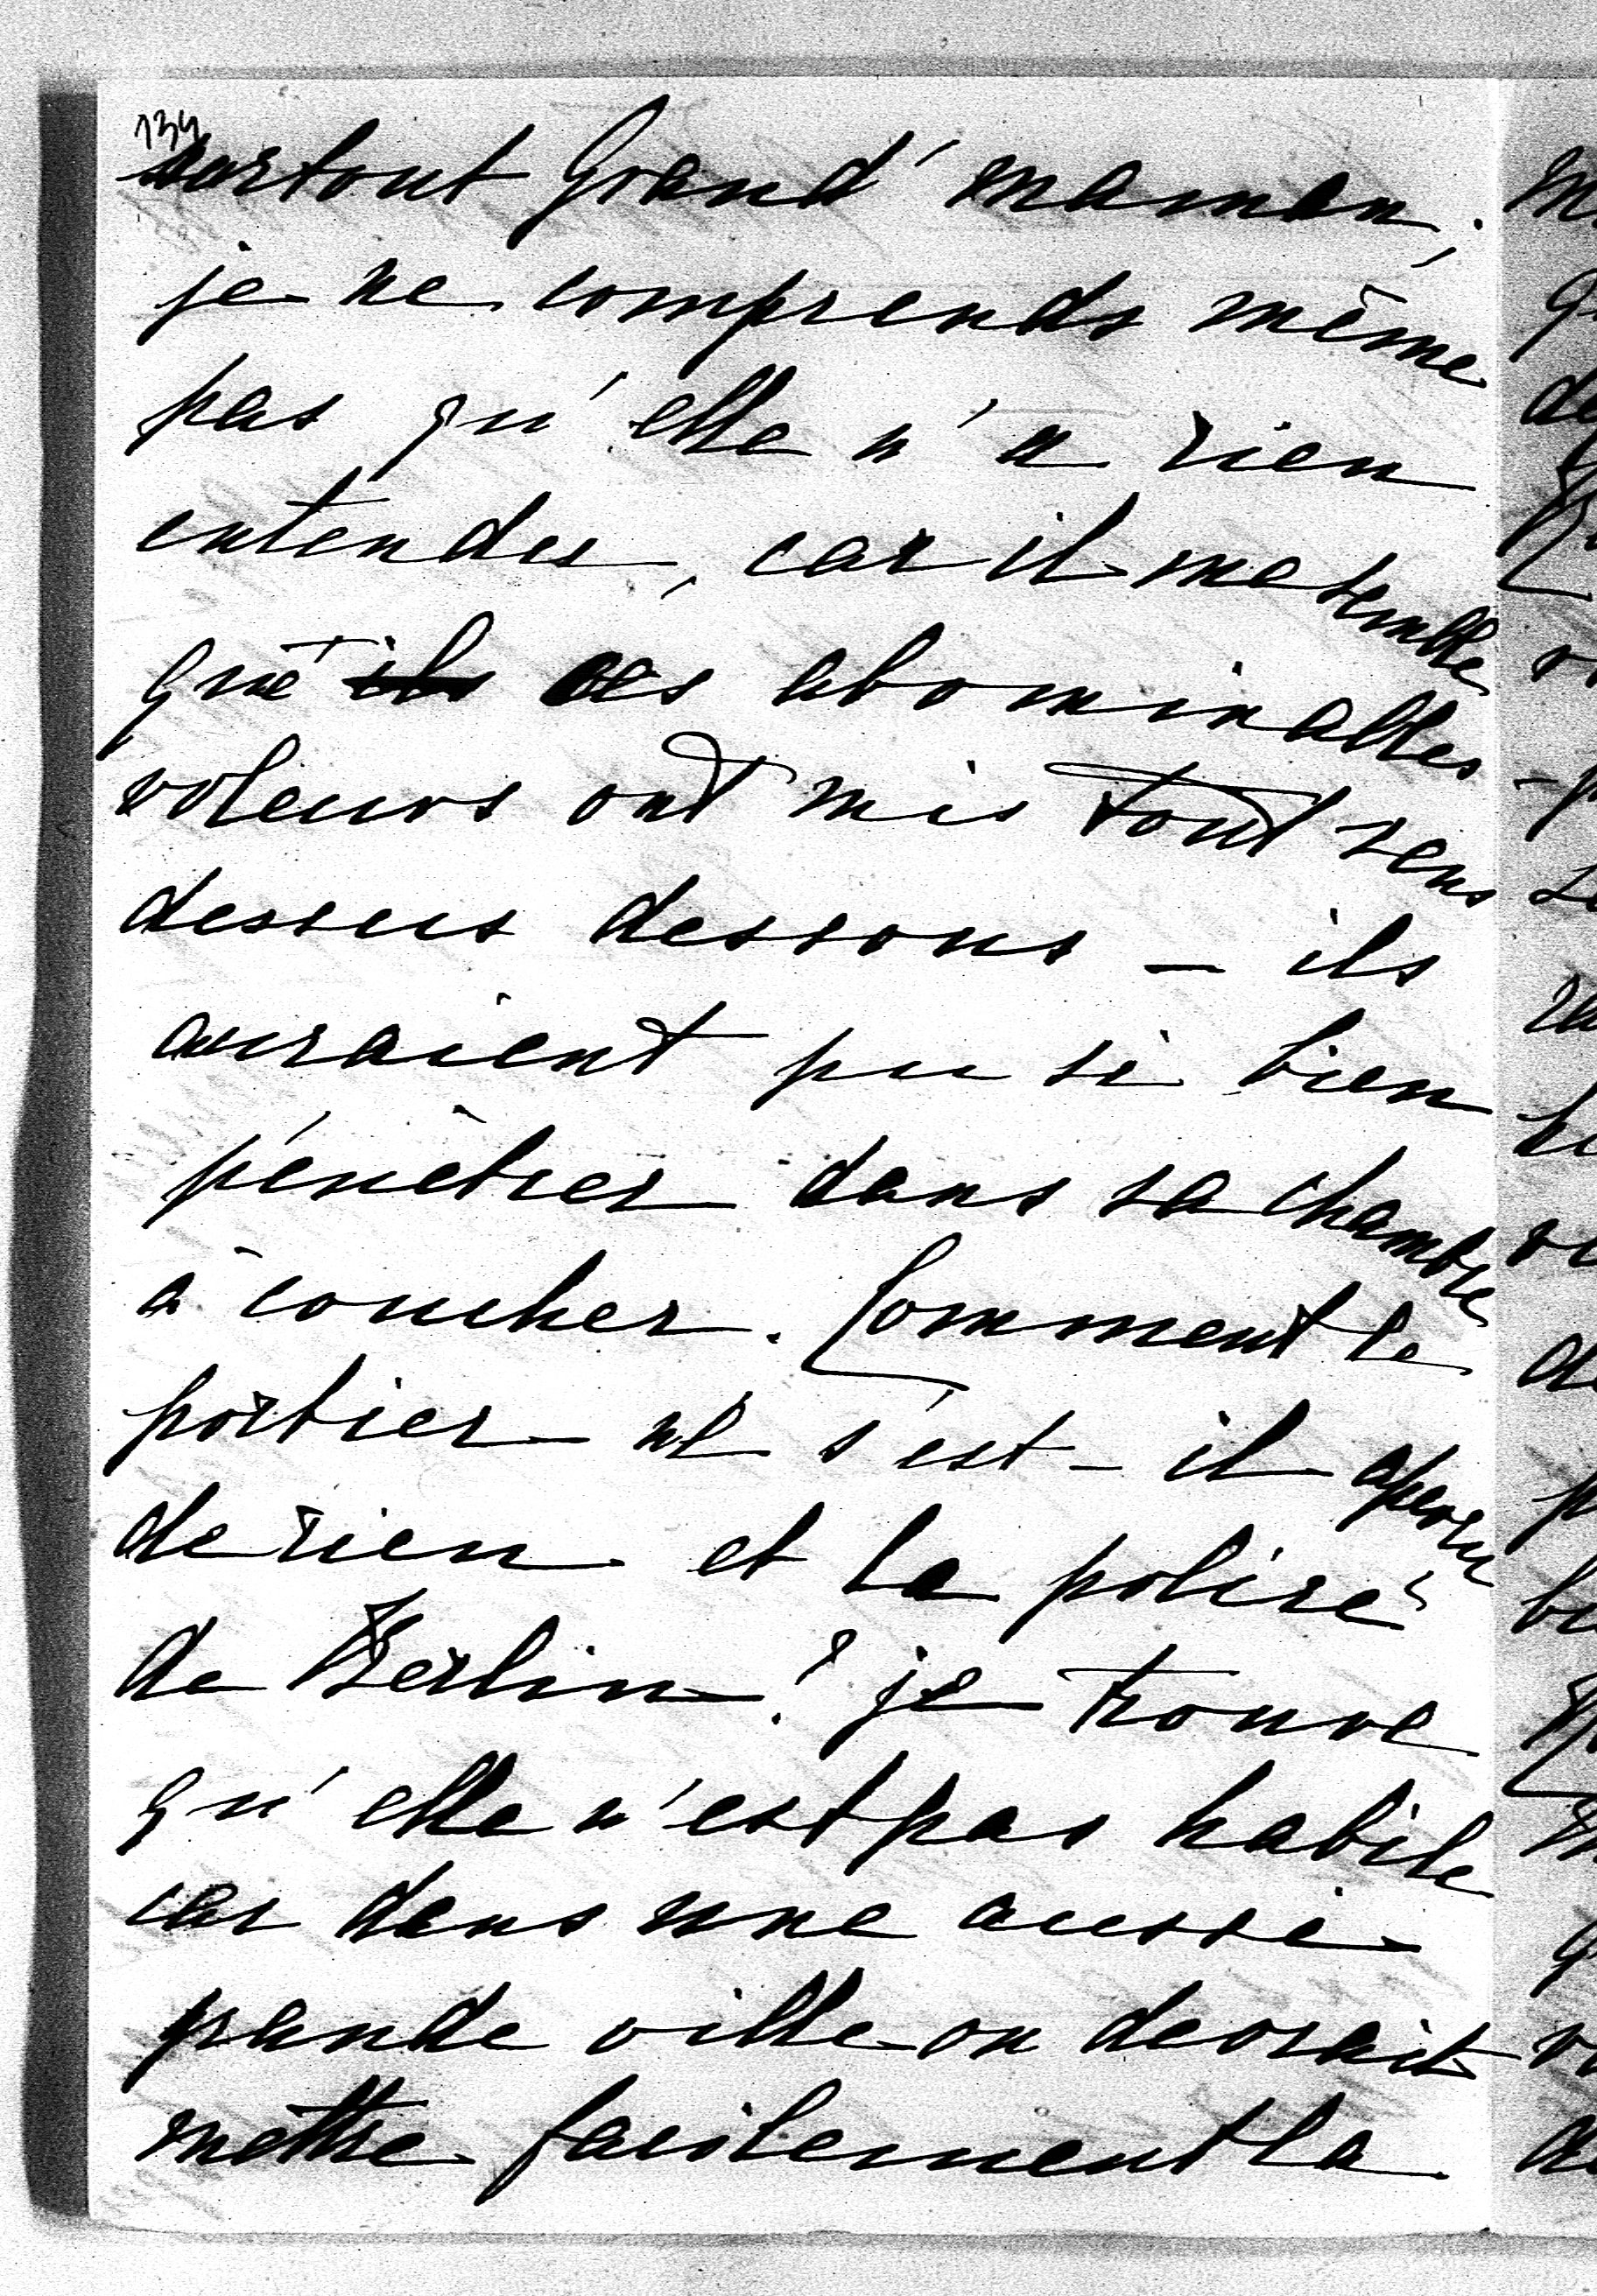 134
surtout Grand'maman;
je ne comprends même
pas qu'elle n'a rien
entendu, car il me semble
que ils ces abominables
voleurs ont mis tout sens
dessus dessous – ils
auraient pu si bien
pénètrer dans sa chambre
à coucher. Comment le
portier ne s'est-il aperçu
de rien et la police
de Berlin? je trouve
qu'elle n'est pas habile
car dans une aussi
grande ville on devrait
mettre facilement la